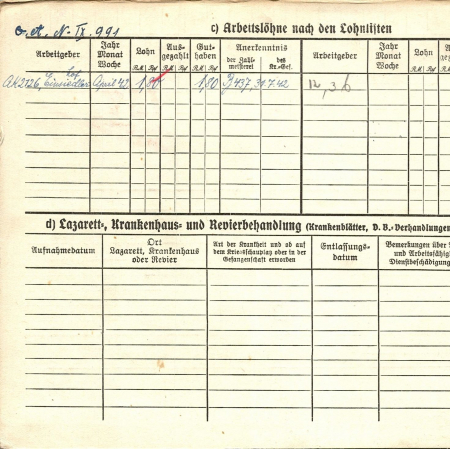 o. A. N- IX. 991
c) Arbeitslöhne nach den Lohnlisten
Arbeitgeber Jahr Monat Woche Lohn Aus- gezahlt Gut- haben Anerkenntnis Arbeitgeber Jahr Monat Woche Lohn
der Zahl- meisterei des Kr.-Gef.
RM Rpf RM Rpf RM Rpf RM Rpf
AK 2726, April 42 1,80 1,80 31.7.42 12,36
d) Lazarett-, Krankenhaus- und Revierbehandlung (Krankenblätter, D. B.-Verhandlungen
Aufnahmedatum Ort Lazarett, Krankenhaus oder Revier Art der Krankheit und ob auf dem Kriegsschauplatz oder in der Gefangenschaft erworben Entlassungs- datum Bemerkungen über und Arbeitsfähig Dienstbeschädigung